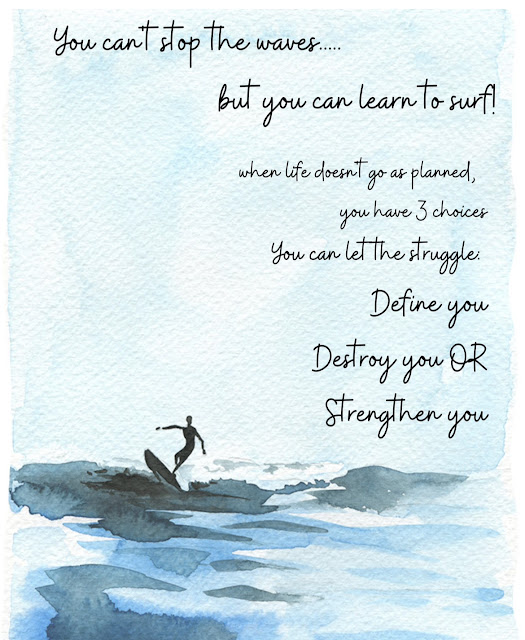 You can't stop the waves.....
but you can learn to surf!
when life doesn't go as planned,
you have 3 choices
You can let the struggle:
Define you
Destroy you OR
Strengthen you